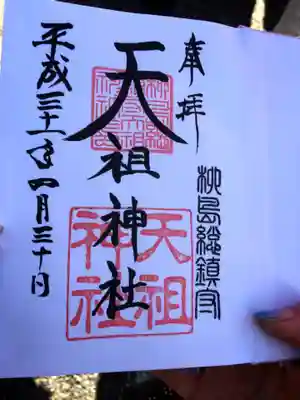 奉拝
柳島総鎮守
天祖神社
天祖
神社
平成三十一年四月三十日